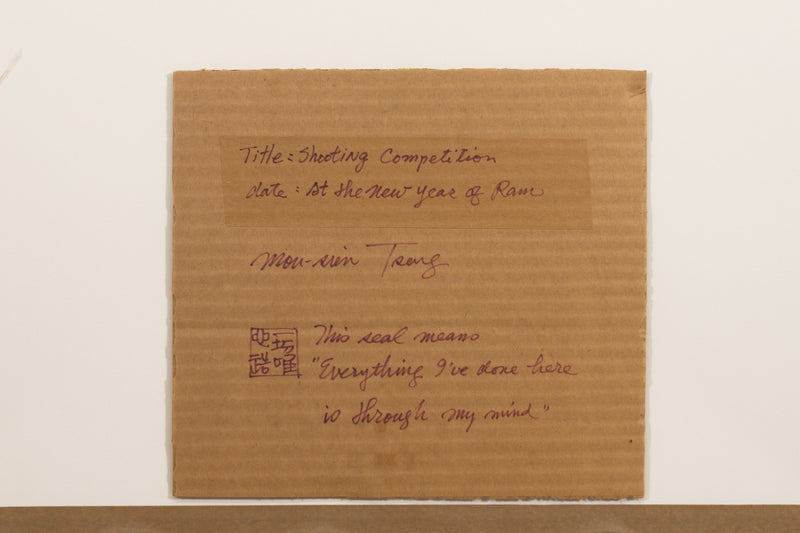 Title: Shooting Competition
date: At the new year of Ram
Mou-sien Tseng
一切唯心造
This seal means
"Everything I've done here
is through my mind"